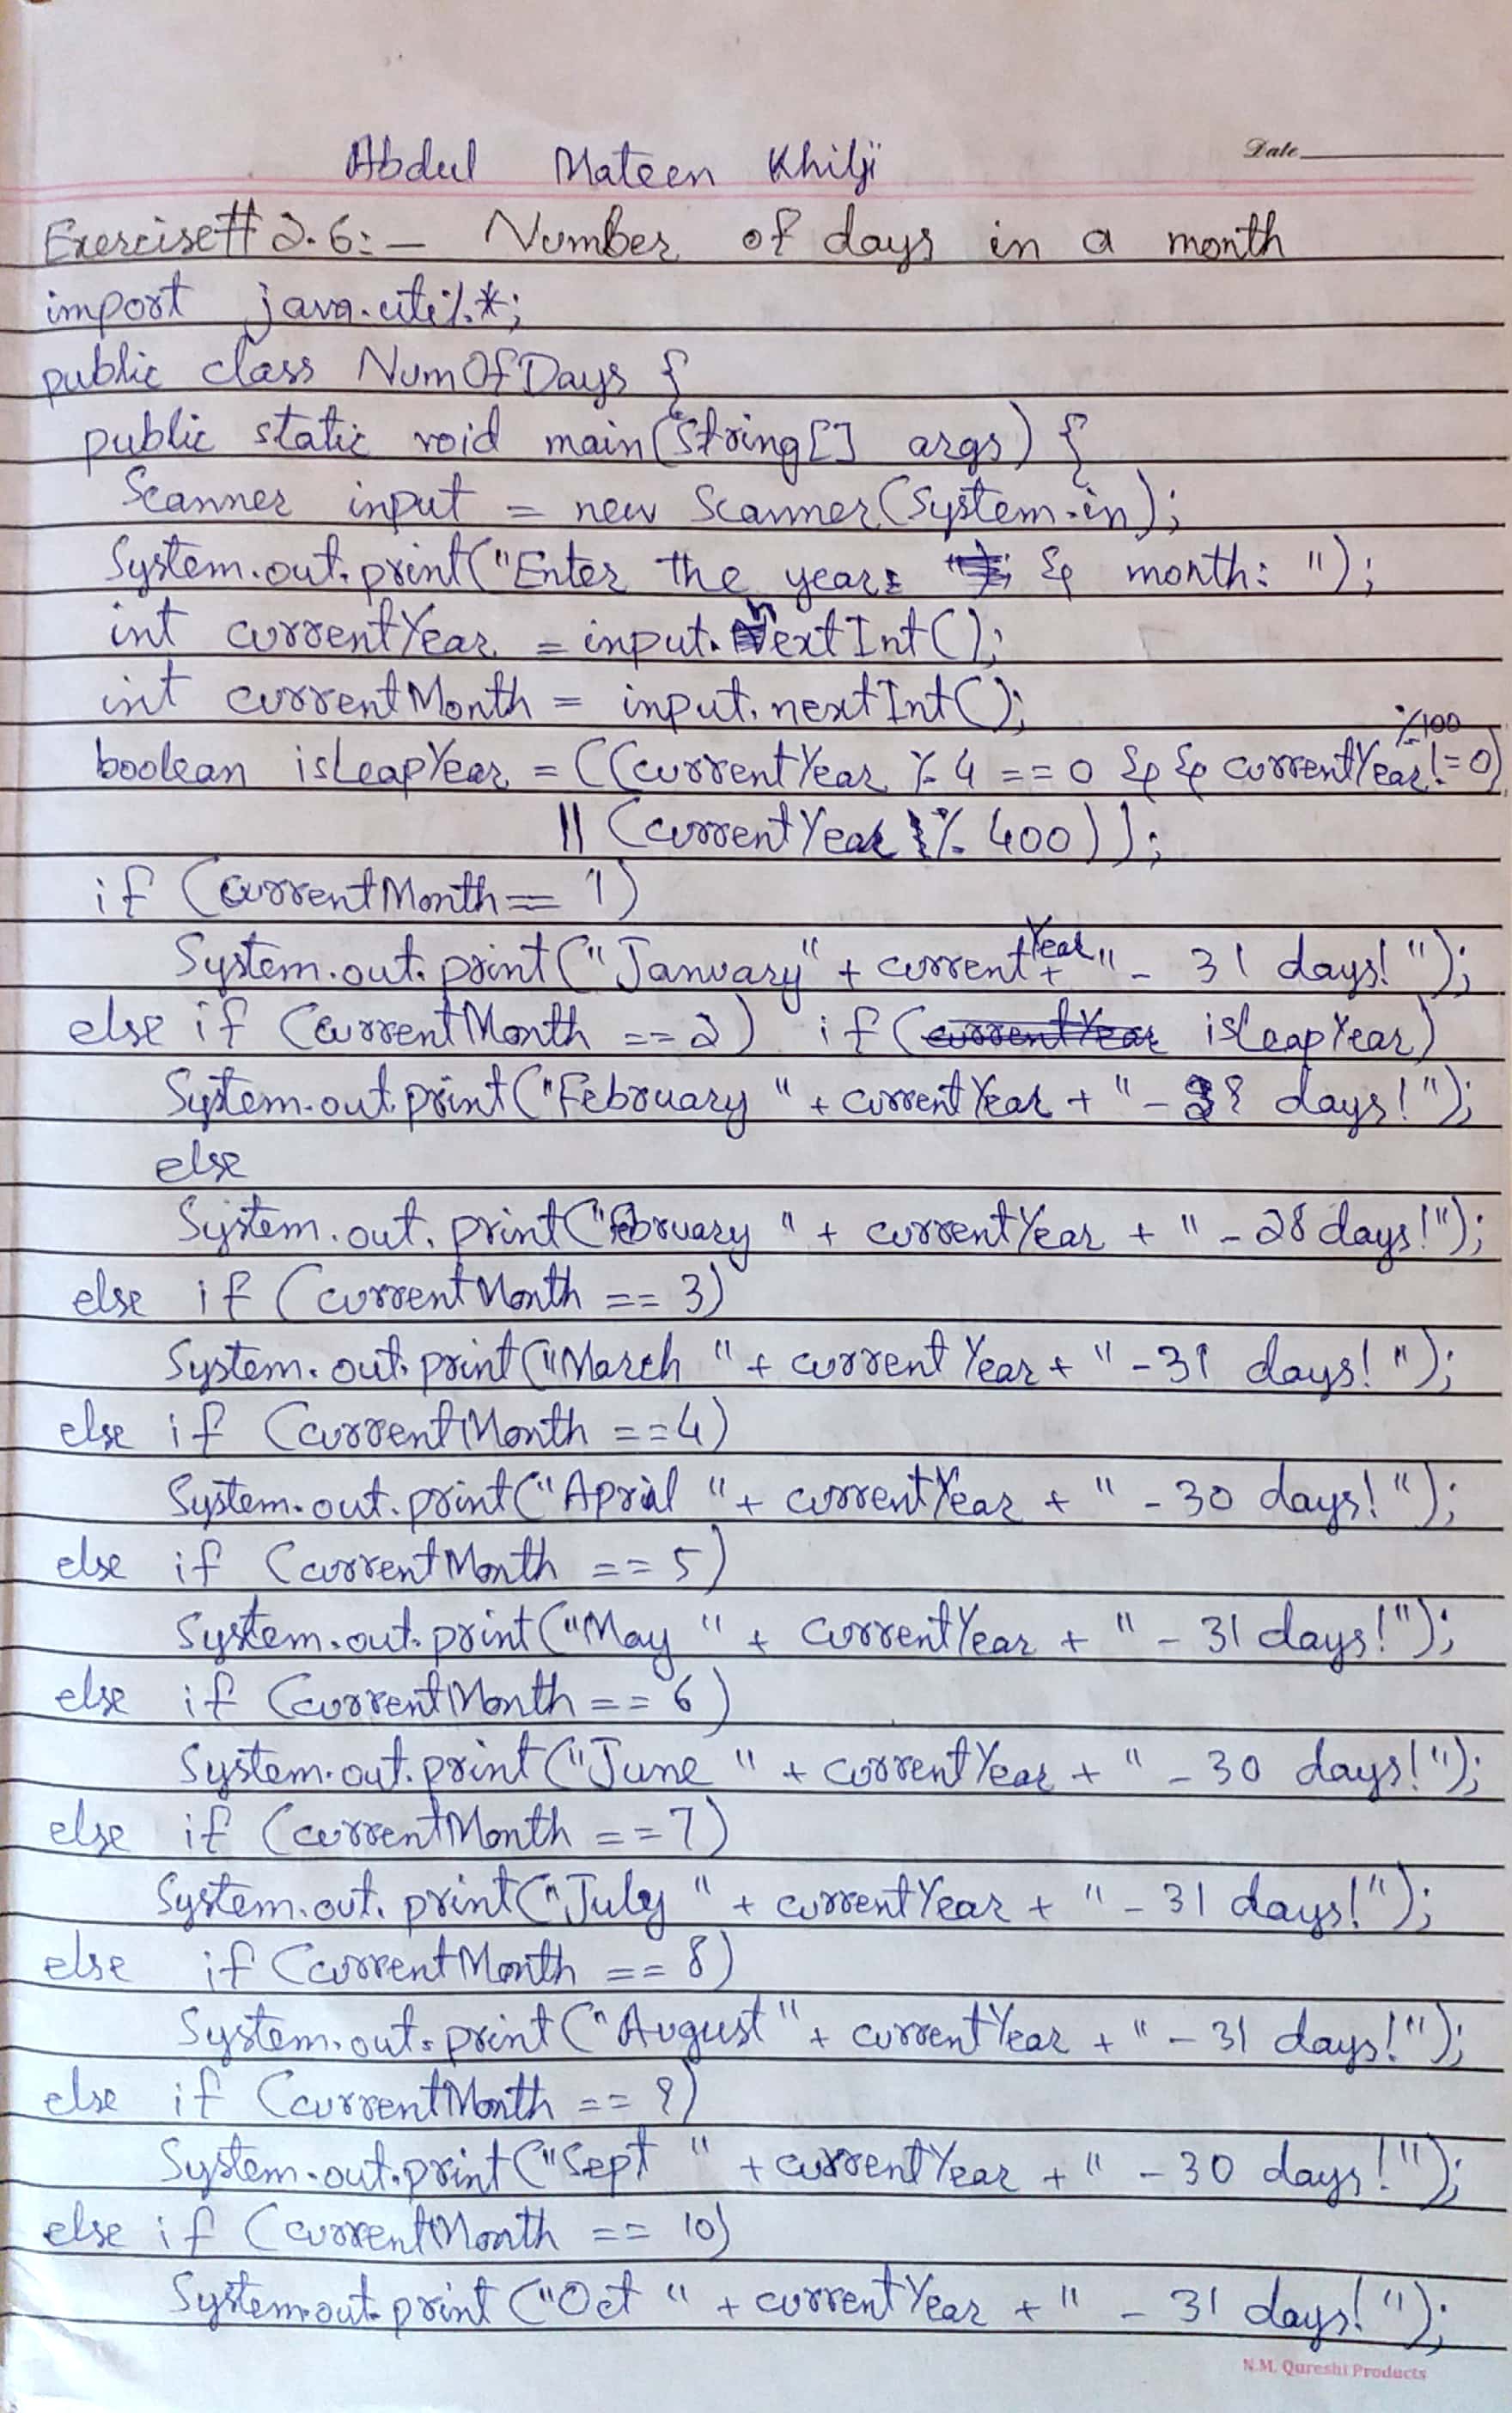 Abdul Mateen Khilji
Date
Exercise# 2.6:- Number of days in a month
import java.util.*;
public class NumOfDays {
public static void main(String[] args) {
Scanner input = new Scanner(System.in);
System.out.print("Enter the year & month: ");
int currentYear = input.nextInt();
int currentMonth = input.nextInt();
boolean isLeapYear = ((currentYear % 4 == 0 && currentYear %100 != 0)
|| (currentYear % 400));
if (currentMonth == 1)
System.out.print("January" + currentYear + " - 31 days!");
else if (currentMonth == 2) if (isLeapYear)
System.out.print("February " + currentYear + " - days!");
else
System.out.print("February " + currentYear + " - 28 days!");
else if (currentMonth == 3)
System.out.print("March " + currentYear + " - 31 days!");
else if (currentMonth == 4)
System.out.print("April " + currentYear + " - 30 days!");
else if (currentMonth == 5)
System.out.print("May " + currentYear + " - 31 days!");
else if (currentMonth == 6)
System.out.print("June " + currentYear + " - 30 days!");
else if (currentMonth == 7)
System.out.print("July " + currentYear + " - 31 days!");
else if (currentMonth == 8)
System.out.print("August" + currentYear + " - 31 days!");
else if (currentMonth == 9)
System.out.print("Sept " + currentYear + " - 30 days!");
else if (currentMonth == 10)
System.out.print("Oct " + currentYear + " - 31 days!");
N.M. Qureshi Products